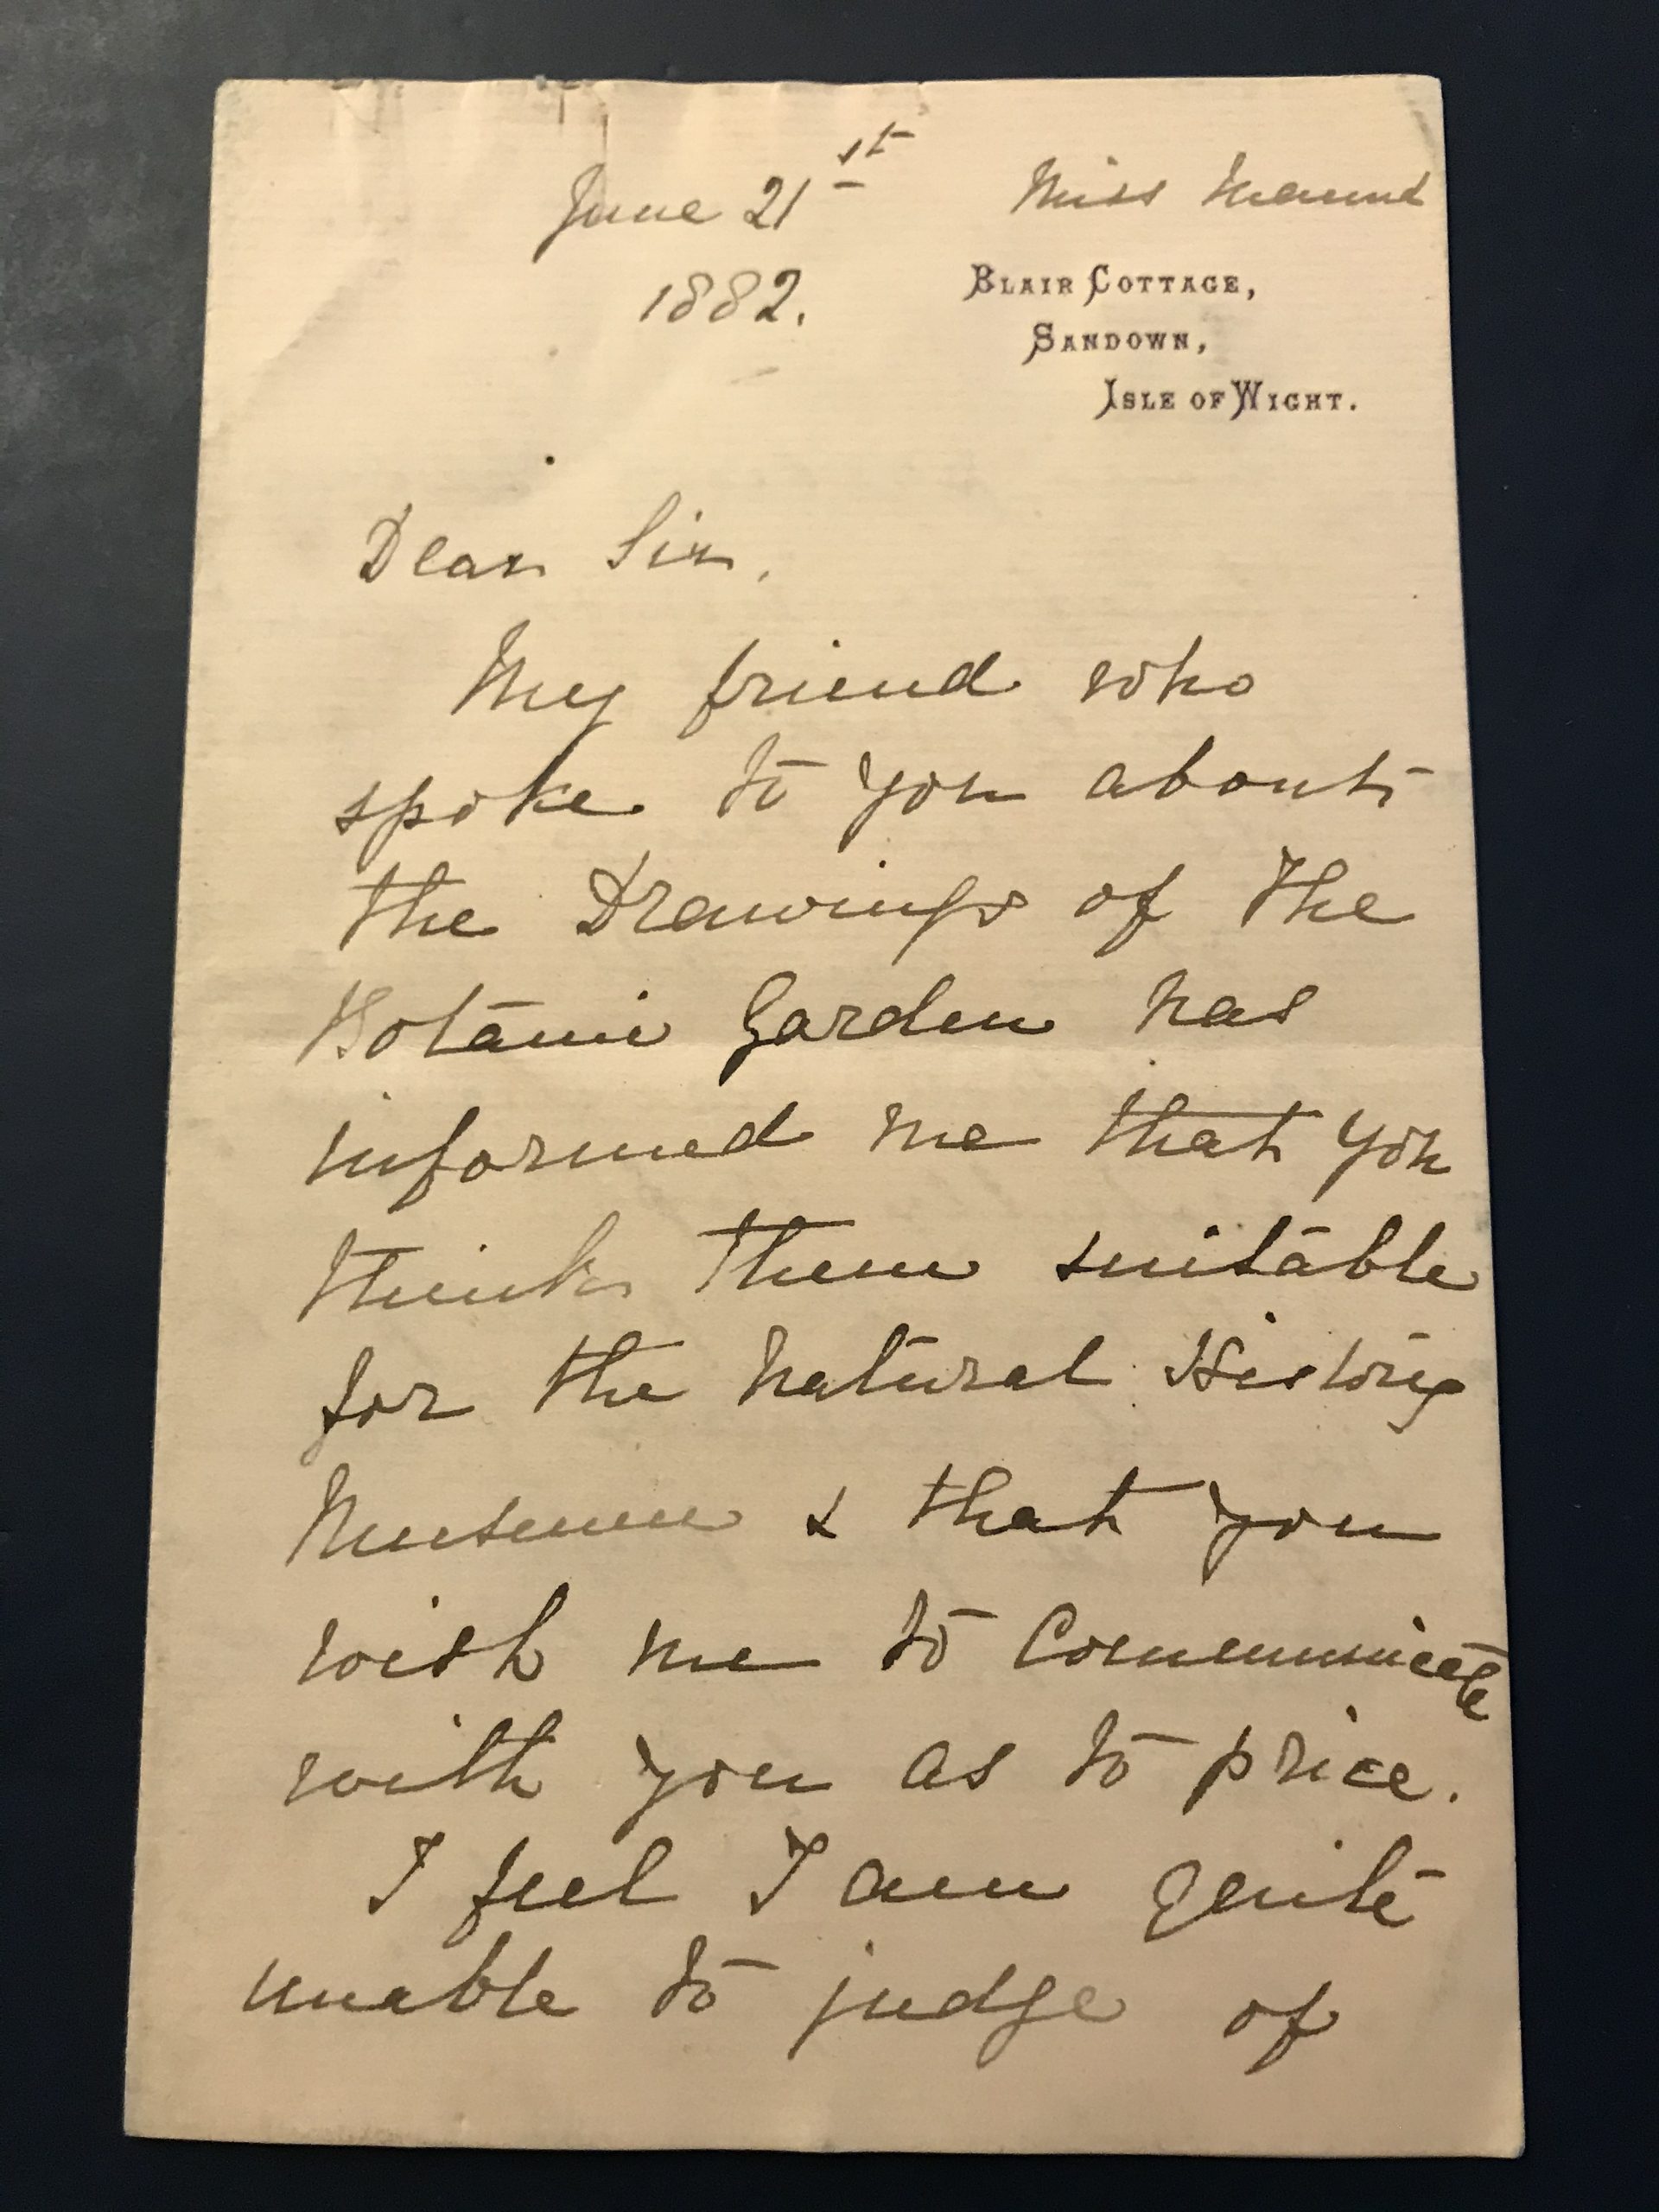 June 21st
Miss Maund
1882.
BLAIR COTTAGE,
SANDOWN,
ISLE OF WIGHT.
Dear Sir,
My friend who
spoke to you about
the Drawings of the
Botanic Garden has
informed me that you
think them suitable
for the Natural History
Museum & that you
wish me to Communicate
with you as to price.
I feel I am quite
unable to judge of